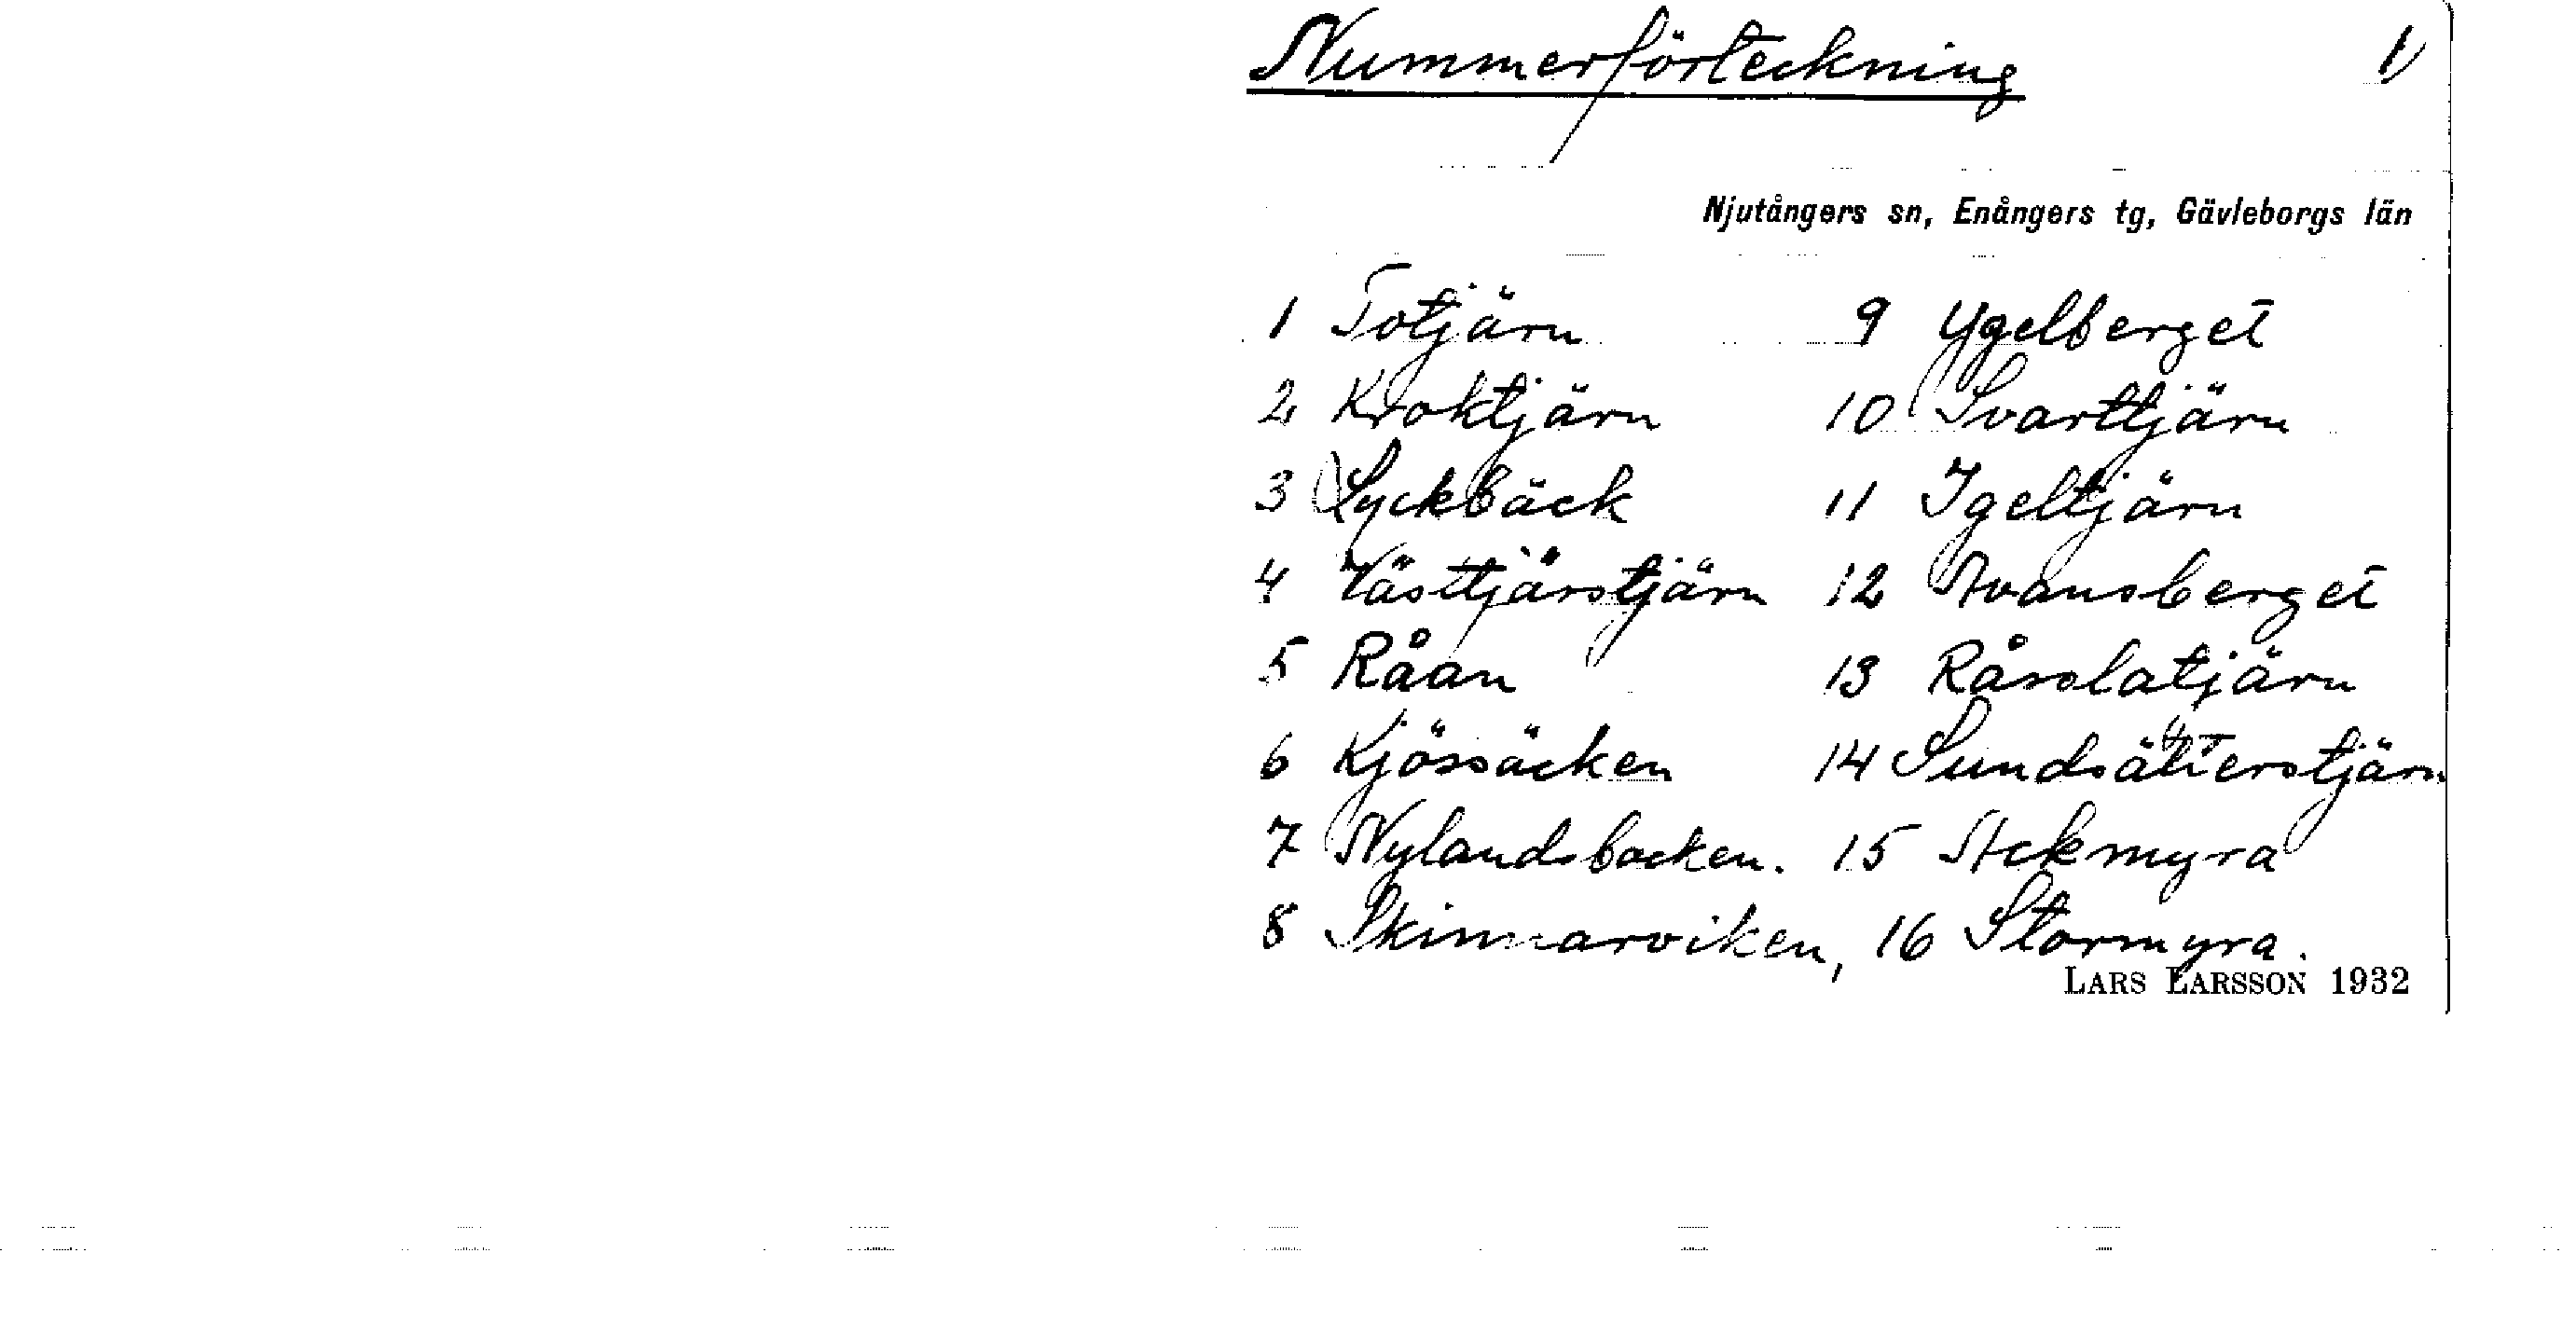 Nummerförteckning 1)
Njutångers sn, Enångers tg, Gävleborgs län
1 Totjärn 9 Ygelberget
2 Kroktjärn 10 Svarttjärn
3 Lyckbäck 11 Igeltjärn
4 Västtjärstjärn 12 Avansberget
5 Råan 13 Råsslatjärn
6 Kjössäcken 14 Sundsätterstjärn
7 Nylandsbacken. 15 Stckmyra
8 Skinnarviken, 16 Stormyra.
LARS LARSSON 1932